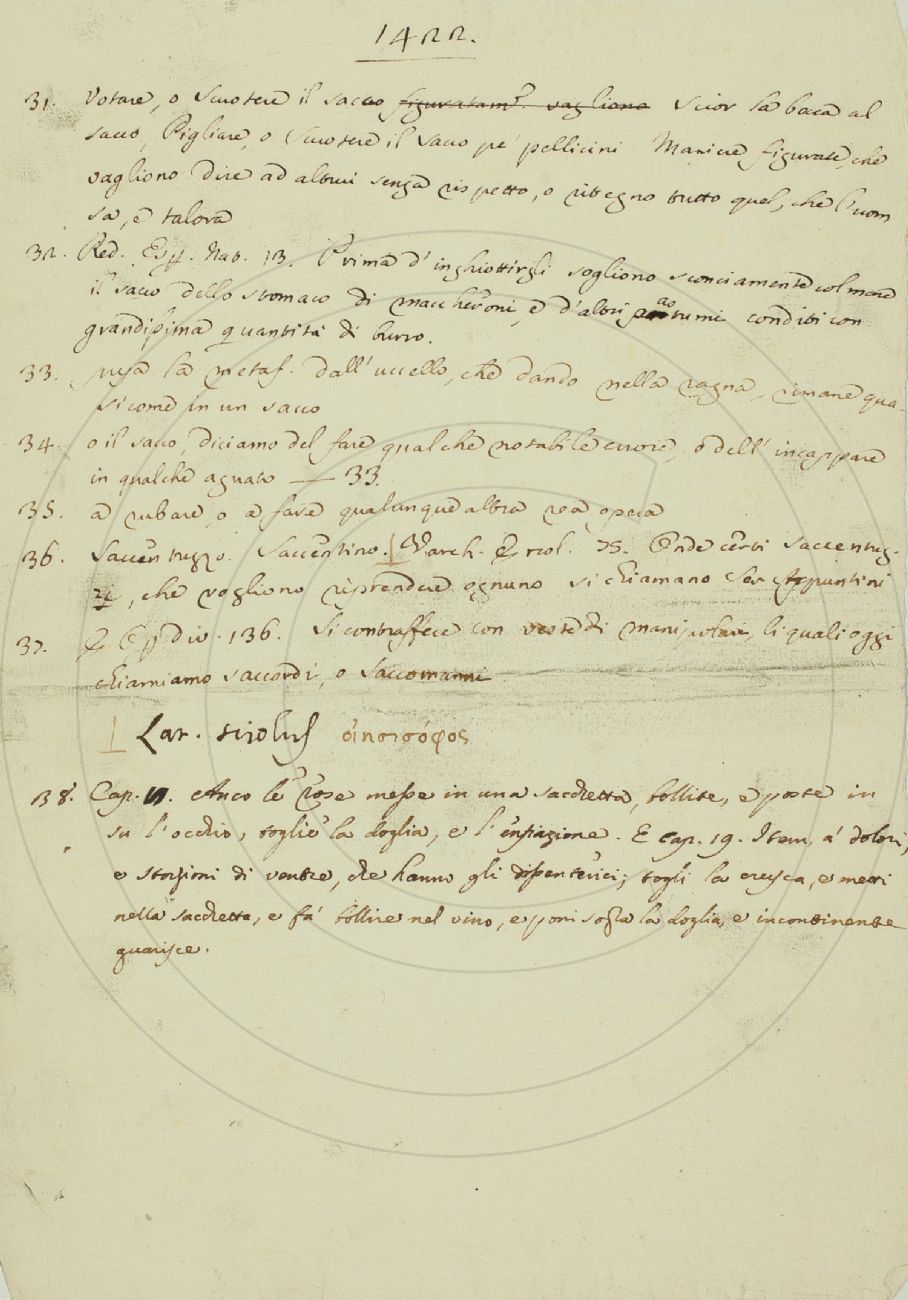 1422.
31. Votare, o Scuotere il sacco figuratam.e vagliono Scior la bocca al
sacco, Pigliare, o Scuotere il sacco pe' pellicini Maniere figurate, che
vagliono Dire ad altrui senza rispetto, o ritegno tutto quel, che l'uom
sa, e talora
32. Red. Esp. Nat. 13. Prima d'inghiottirgli sogliono sconciamente colmare
il sacco dello stomaco di maccheroni, e d'altri conditi con
grandissima quantità di burro.
33. presa la metaf. dall'uccello, che dando nella ragna, rimane qua-
si come in un sacco
34. o il sacco, diciamo del fare qualche notabile errore, o dell'incappare
in qualche aguato — 33.
35. a rubare, o a fare qualunque altra rea opera
36. Saccentuzzo. Saccentino. Varch. Ercol. 75. Onde certi saccentuz-
zi, che vogliono riprendere ognuno si chiamano Ser Appuntini
37. E Op. div. 136. Si contraffece con veste di manipolare, li quali oggi
chiamiamo saccardi, o saccomanni
Lat. sciolus οἰησισόφος
38. Cap. 11. Anco le rose messe in una sacchetta, bollite, e poste in
su l'occhio, toglie la doglia, e l'enfiazione. E cap. 19. Item, a' dolori,
e storsioni di ventre, che hanno gli dissenterici; togli la crusca, e metti
nella sacchetta, e fa' bollire nel vino, e poni sossa la doglia, e incontinente
guarisce.